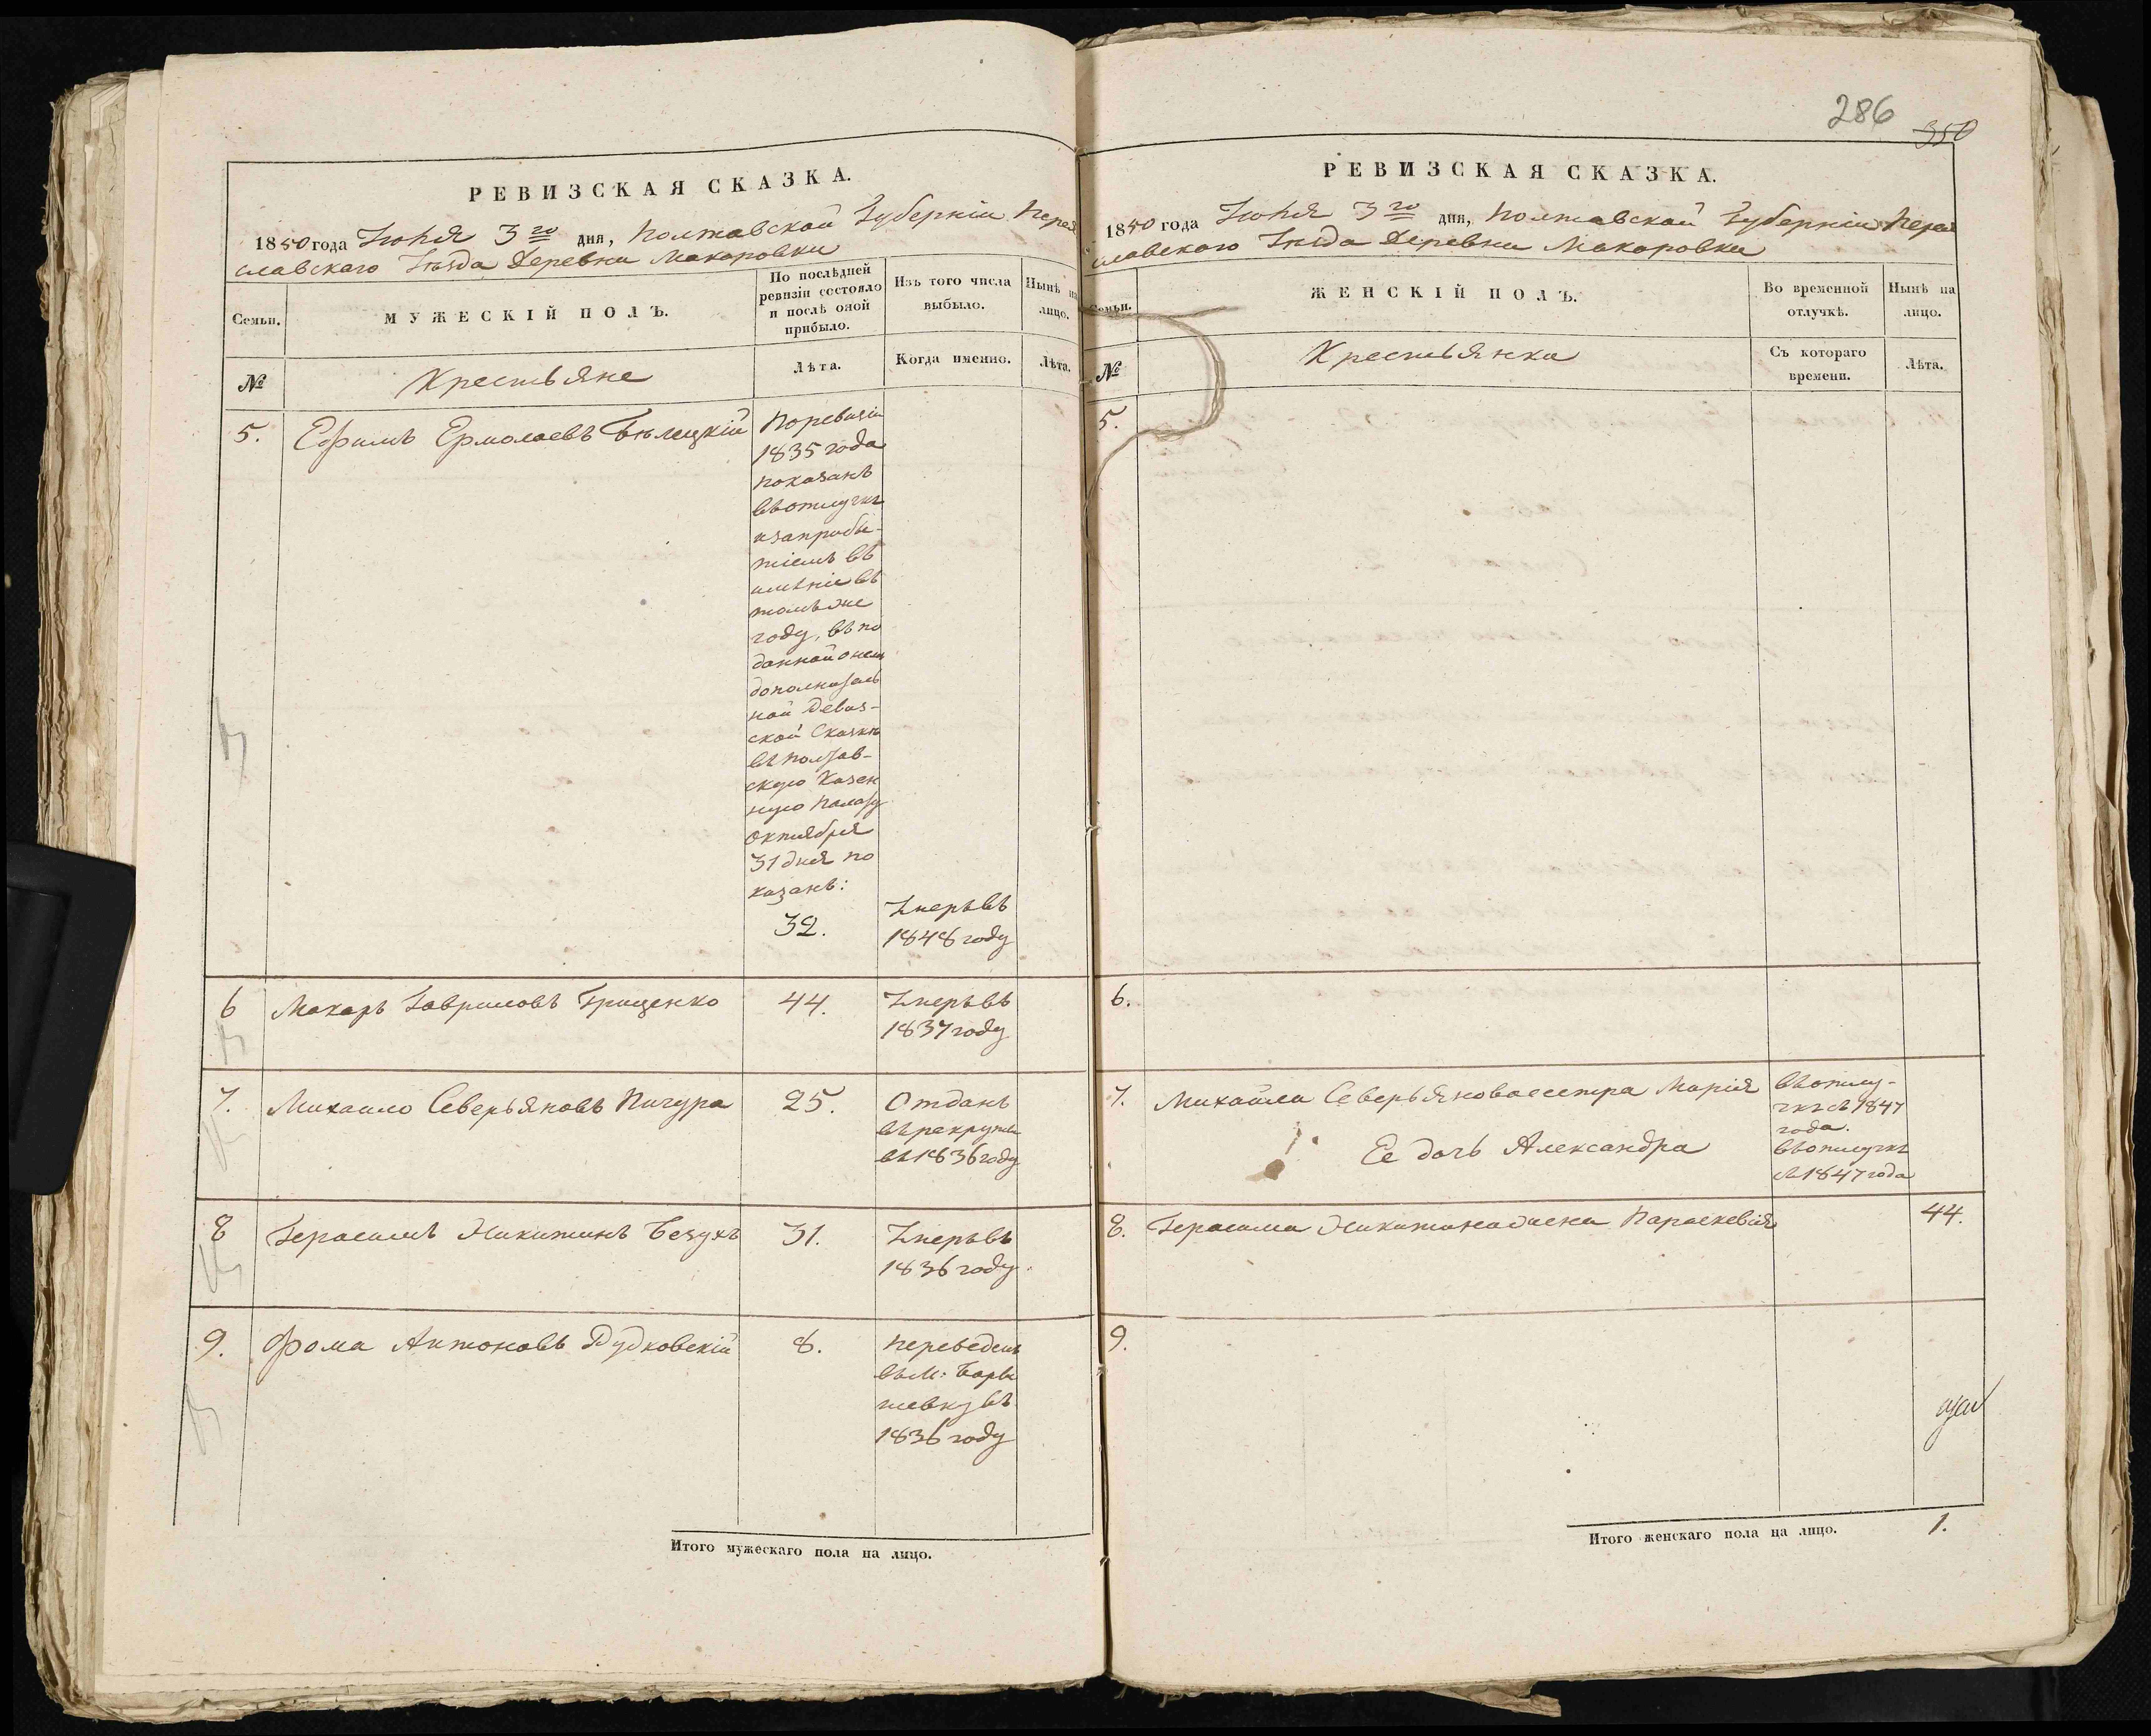 РЕВИЗСКАЯ СКАЗКА.
1850 года Іюня 3го дня, Полтавской Губерніи Перея
славскаго Уѣзда Деревни Макаровки
Семьи.
МУЖЕСКІЙ ПОЛЪ.
По послѣдней
ревизіи состояло
и послѣ оной
прибыло.
Изъ того числа
выбыло.
Нынѣ на
лицо.
№
Крестьяне
Лѣта.
Когда именно.
Лѣта.
5.
Ефимъ Ермолаевъ Бѣлецкій
По ревизіи
1835 года
показанъ
въ отлучкѣ
и за прибы-
тіемъ въ
имѣніе въ
томъ же
году, въ по
данной о немъ
дополнитель
ной Ревиз-
ской Сказкѣ
въ Полтав-
скую Казен
ную Палату
Октября
31 дня по
казанъ:
32.
Умеръ въ
1848 году
6
Макаръ Гавриловъ Грищенко
44.
Умеръ въ
1837 году
7.
Михайло Северьяновъ Пичура
25.
Отданъ
въ рекруты
въ 1836 году
8
Герасимъ Никитинъ Безухъ
31.
Умеръ въ
1836 году.
9.
Фома Антоновъ Дудковскій
8.
Переведенъ
въ М: Бары
шевку въ
1836 году
Итого мужескаго пола на лицо.
286
350
РЕВИЗСКАЯ СКАЗКА.
1850 года Іюня 3го дня, Полтавской Губерніи Перея
славскаго Уѣзда Деревни Макаровки
Семьи.
ЖЕНСКІЙ ПОЛЪ.
Во временной
отлучкѣ.
Нынѣ на
лицо.
№
Крестьянки
Съ котораго
времени.
Лѣта.
5.
6.
7.
Михайла Северьянова сестра Марія
въ отлу-
чкѣ съ 1847
года.
Ее дочь Александра
въ отлучкѣ
съ 1847 года
8.
Герасима Никитина жена Параскевія
44.
9.
Итого женскаго пола на лицо.
1.